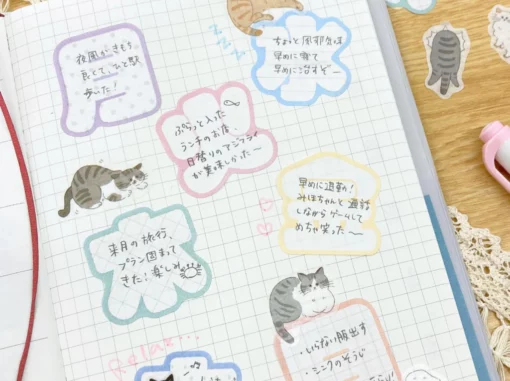 夜風がきもち
良くて、ひと駅
歩いた!
ちょっと風邪気味
早めに寝て
早めに治すぞー
ぷらっと入った
ランチのお店、
日替りのアジフライ
が美味しかった〜
早めに退勤!
みほちゃんと通話
しながらゲームして
めちゃ笑った〜
来月の旅行、
プラン固まって
きた!楽しみ
Relax...
・いらない服出す
・シンクのそうじ